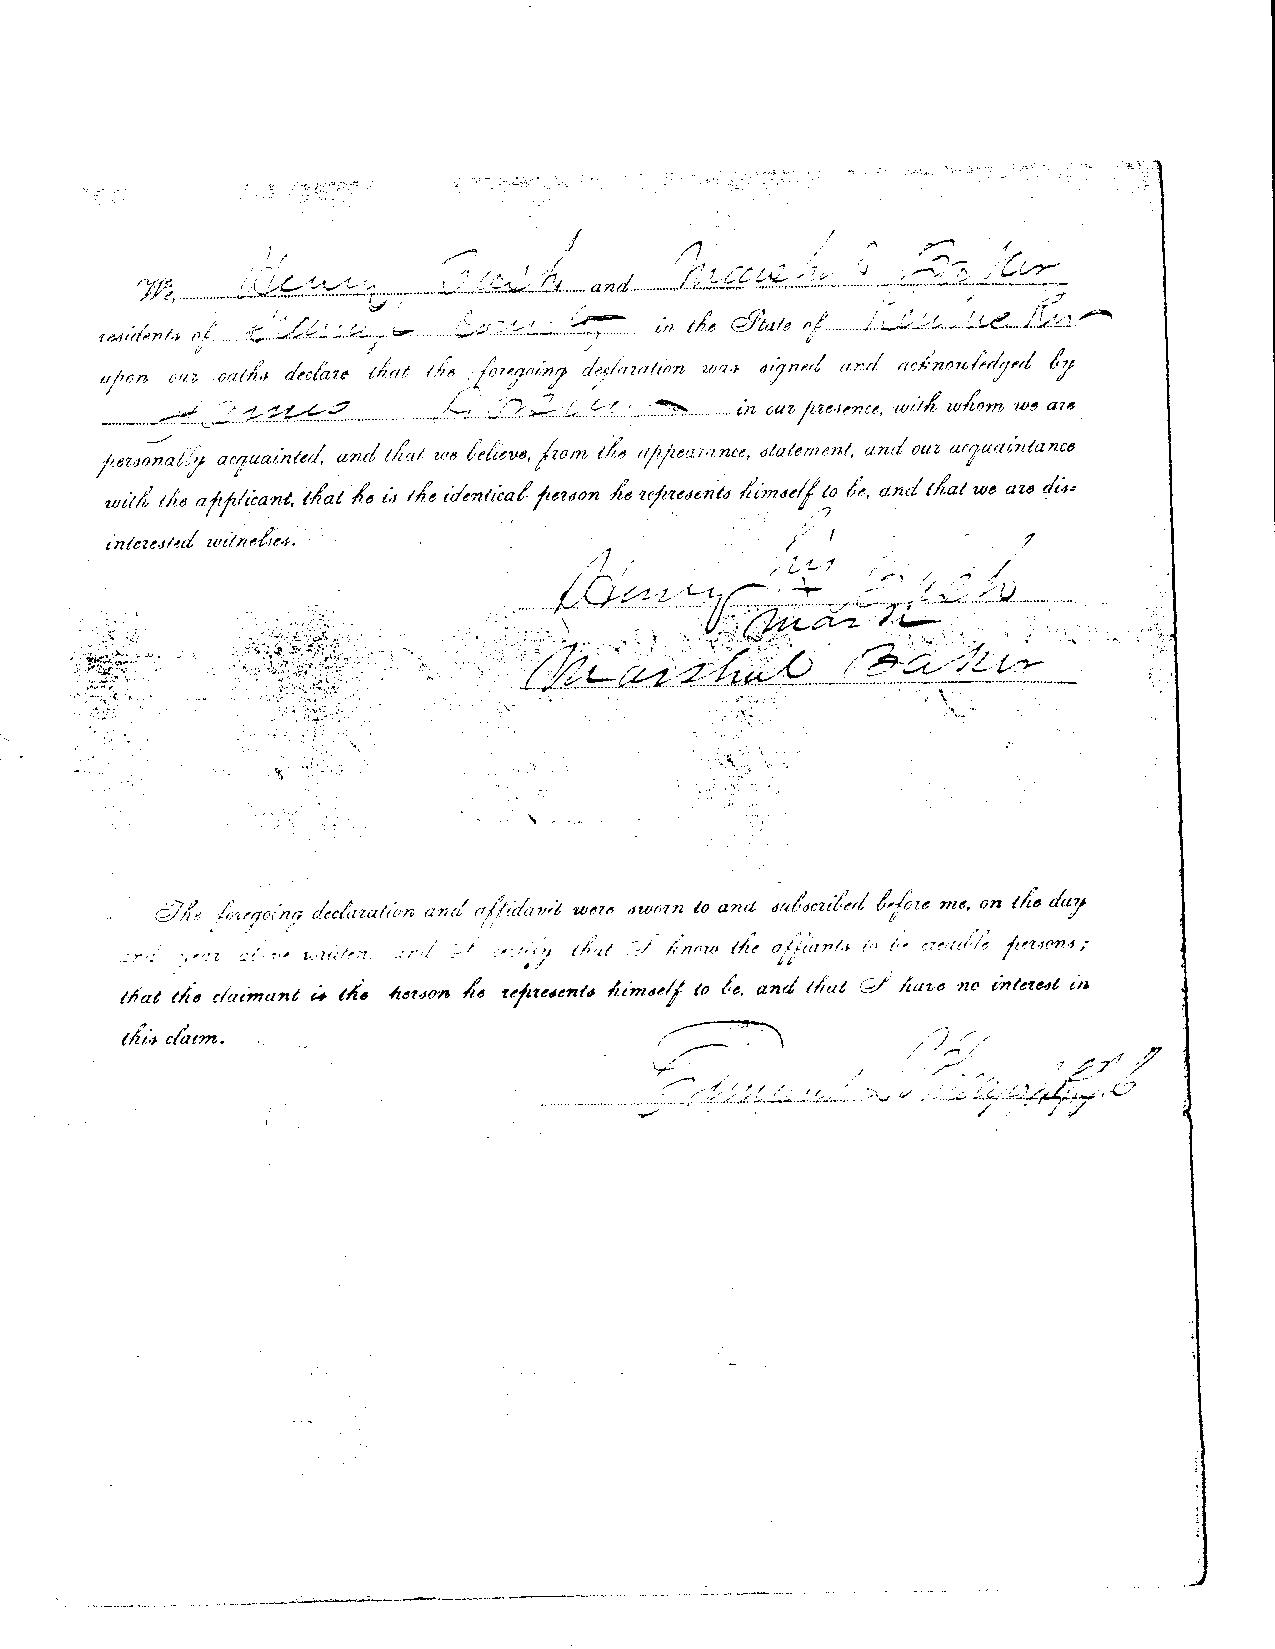 We, Henry and Marshal Baker
residents of County in the State of Kentucky
upon our oaths declare that the foregoing declaration was signed and acknowledged by
James in our presence, with whom we are
personally acquainted, and that we believe, from the appearance, statement, and our acquaintance
with the applicant, that he is the identical person he represents himself to be, and that we are dis=
interested witnesses.
his
Henry x
mark
Marshal Baker
The foregoing declaration and affidavit were sworn to and subscribed before me, on the day
and year above written, and I certify that I know the affiants to be credible persons;
that the claimant is the person he represents himself to be, and that I have no interest in
this claim.